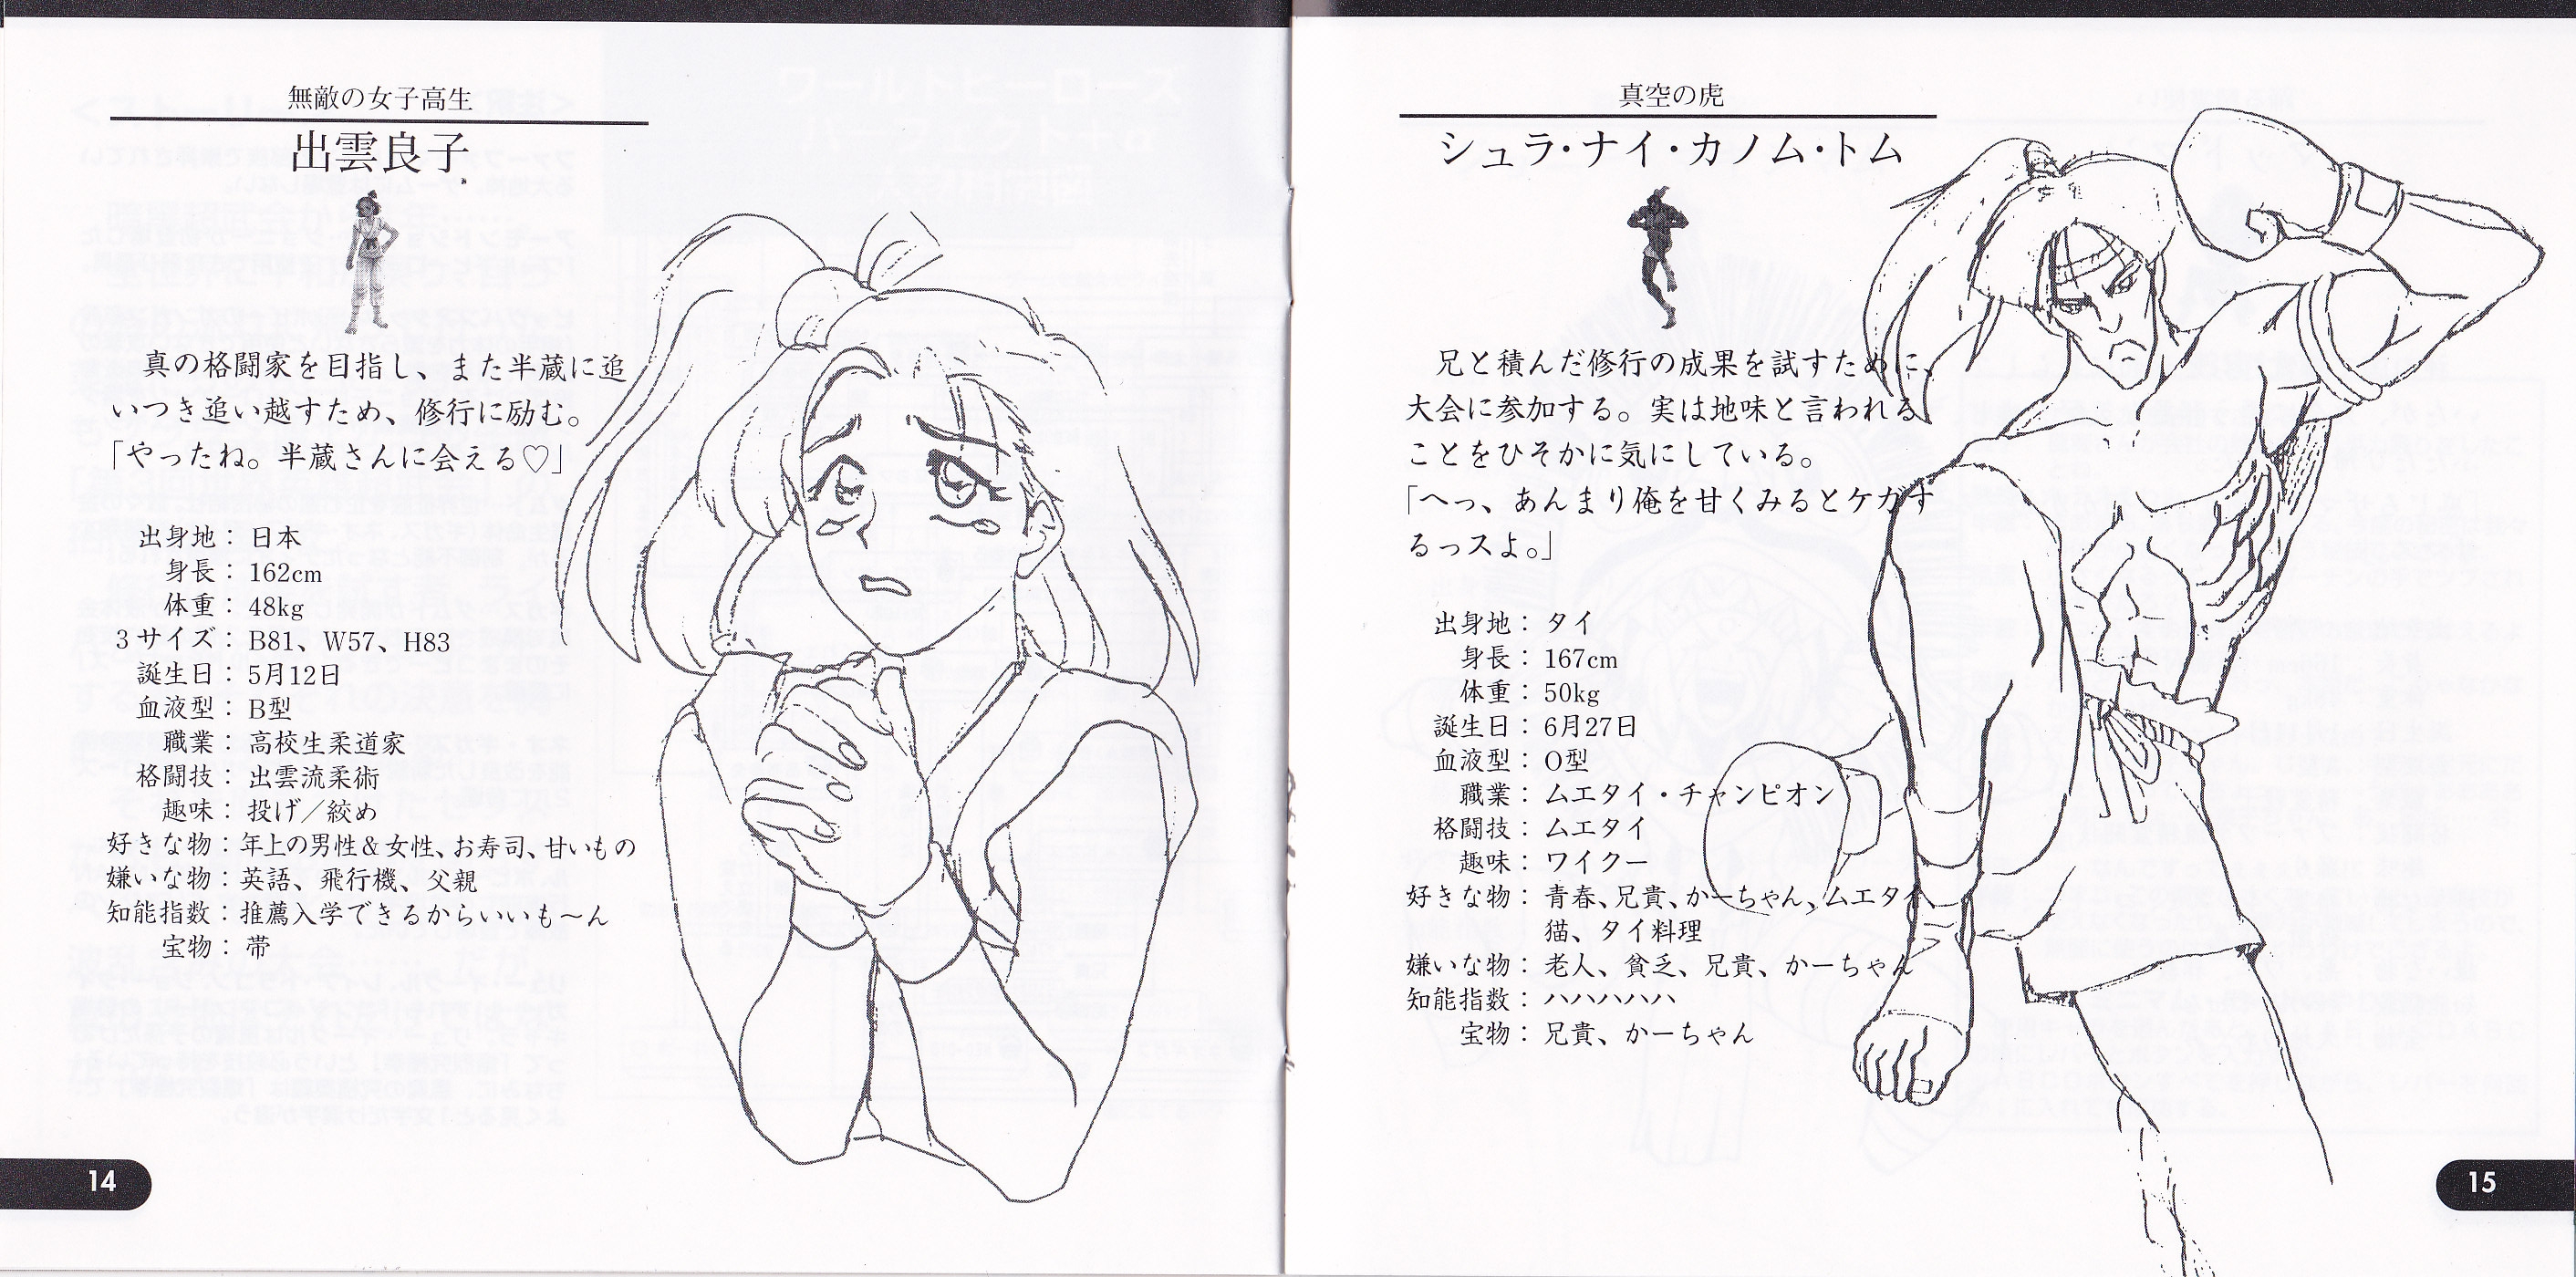 無敵の女子高生
出雲良子
真の格闘家を目指し、また半蔵に追
いつき追い越すため、修行に励む。
「やったね。半蔵さんに会える♡」
出身地：日本
身長：162cm
体重：48kg
3サイズ：B81、W57、H83
誕生日：5月12日
血液型：B型
職業：高校生柔道家
格闘技：出雲流柔術
趣味：投げ／絞め
好きな物：年上の男性＆女性、お寿司、甘いもの
嫌いな物：英語、飛行機、父親
知能指数：推薦入学できるからいいも〜ん
宝物：帯
14
真空の虎
シュラ・ナイ・カノム・トム
兄と積んだ修行の成果を試すために、
大会に参加する。実は地味と言われる
ことをひそかに気にしている。
「へっ、あんまり俺を甘くみるとケガす
るっスよ。」
出身地：タイ
身長：167cm
体重：50kg
誕生日：6月27日
血液型：O型
職業：ムエタイ・チャンピオン
格闘技：ムエタイ
趣味：ワイクー
好きな物：青春、兄貴、かーちゃん、ムエタイ
猫、タイ料理
嫌いな物：老人、貧乏、兄貴、かーちゃん
知能指数：ハハハハハ
宝物：兄貴、かーちゃん
15